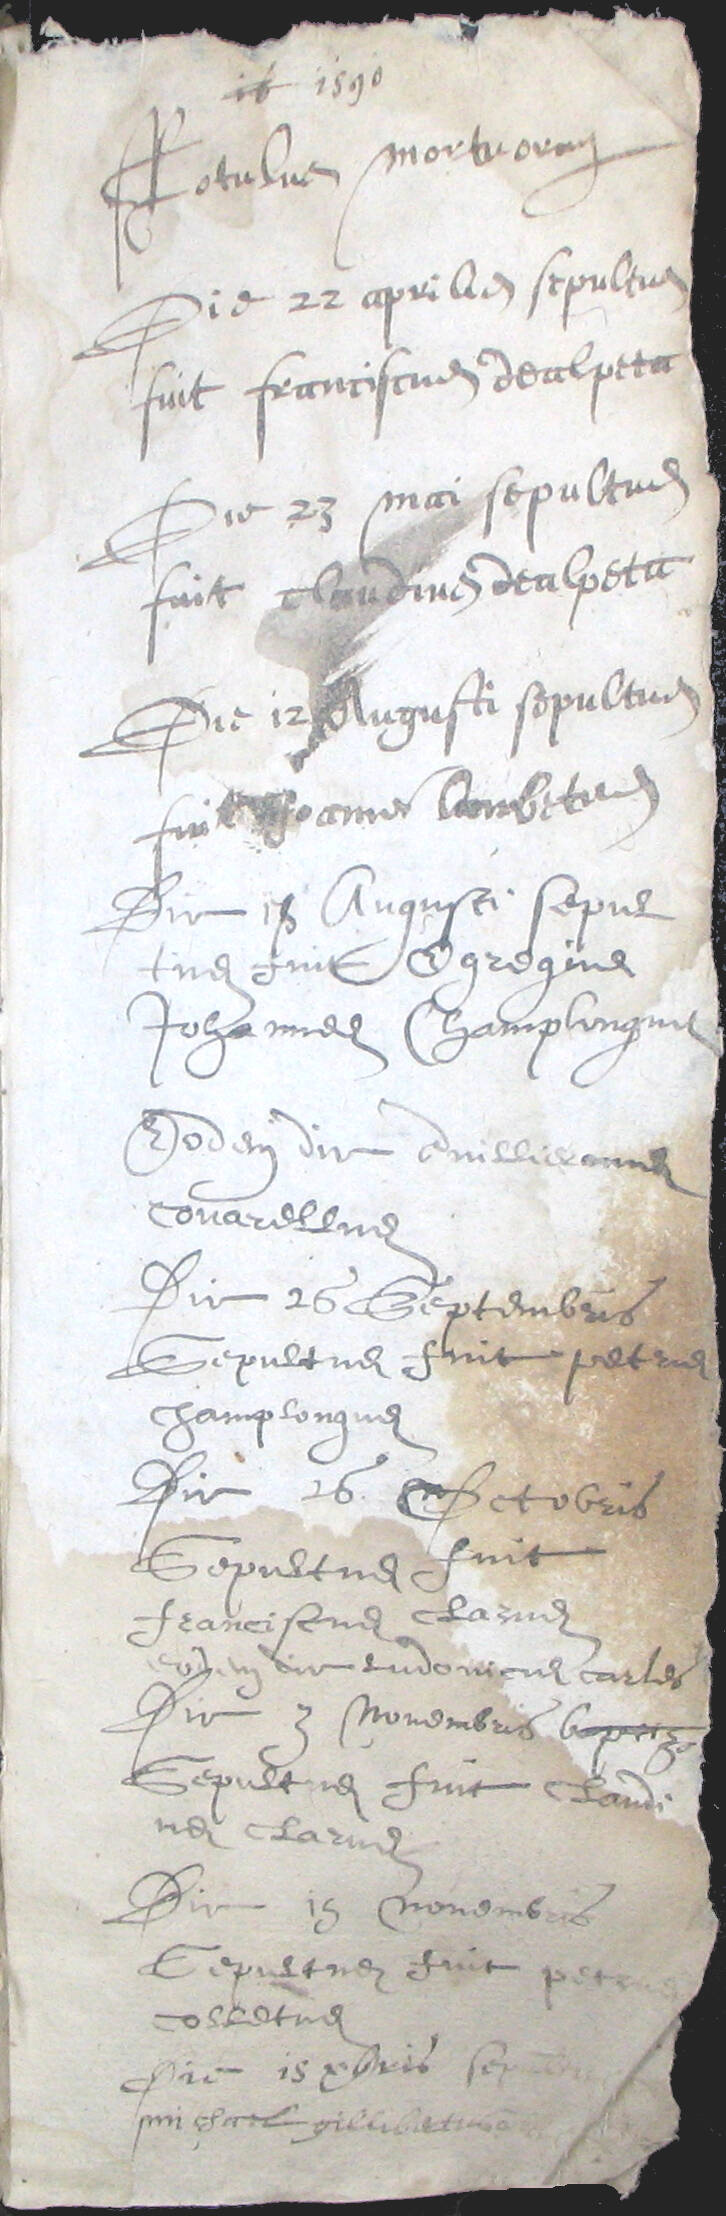 1590
Rotulus mortuorum
Die 22 aprilis sepultus
fuit franciscus dealpeta
Die 23 mai sepultus
fuit claudius dealpeta
Die 12 Augusti sepultus
fuit Joannes
Die Augusti sepul
tus fuit Egregius
Johannes Champlongus
Eodem die Guillermus
covarellus
Die 26 Septembris
Sepultus fuit petrus
champlongus
Die 26 Octobris
Sepultus fuit
franciscus clarus
eodem die ludovicus carles
Die 3 Novembris
Sepultus fuit claudi
us clarus
Die 15 novembris
Sepultus fuit petrus
colletus
Die 15 xbris
michael